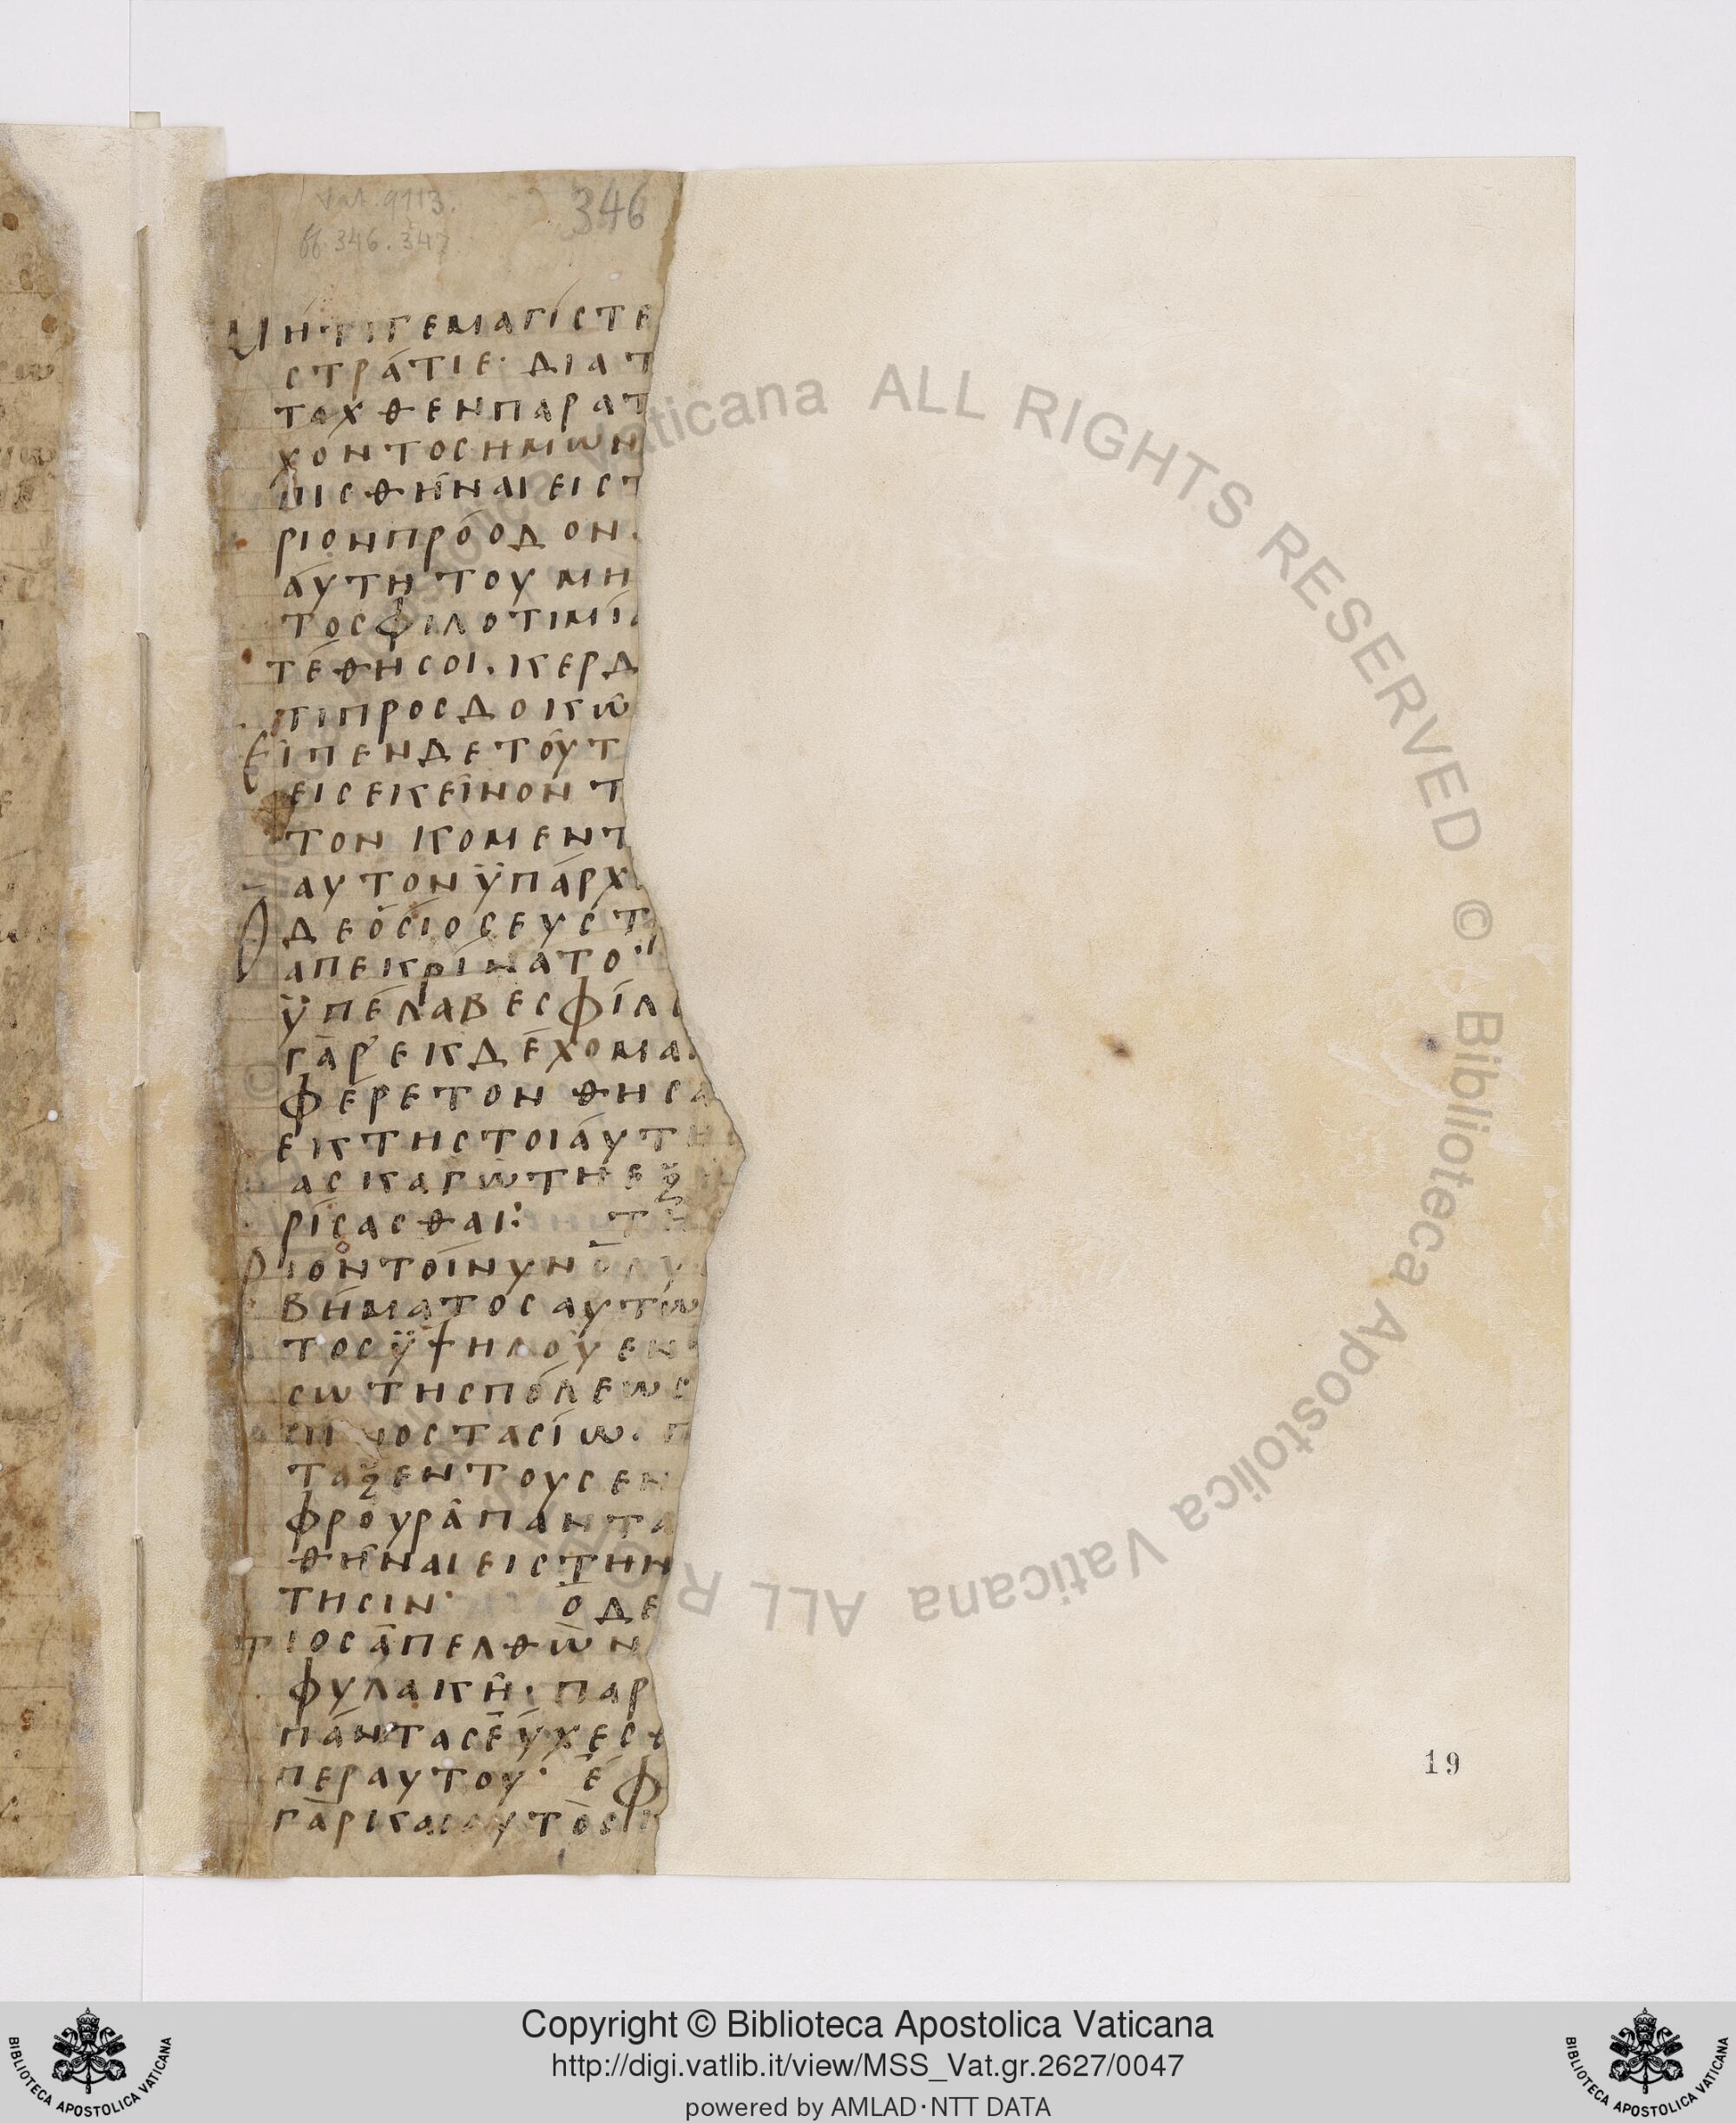 Vat. 9113.
ff. 346. 347
346
ΜΗΤΙΓΕΜΑΓΊϹΤΕ
ϹΤΡΆΤΙΕ· ΔΙΑ Τ
ΤΑΧΘΕΝΠΑΡΑΤ
ΧΟΝΤΟϹΗΜΩΝ
ΠΙϹΘΗ͂ΝΑΙΕΙϹΤ
ΡΙΟΝΠΡΌΟΔΟΝ.
ΆΥΤΗ ΤΟΥ ΜΗ
ΤΟϹΦΙΛΟΤΙΜΊΑ
ΤΈΘΗϹΟΙ. ΚΕΡΔ
ΤΙΠΡΟϹΔΟΚΩ͂
ΕΙΠΕΝΔΕΤΟΥΤ
ΕΙϹΕΚΕΙ͂ΝΟΝ Τ
ΤΟΝ ΚΟΜΕΝΤ
ΑΥΤΟΝΫΠΆΡΧ
ΟΔΕΌϹΙΟϹΕΥϹΤ
ΑΠΕΚΡΊΝΑΤΟ·
ΫΠΈΛΑΒΕϹΦΊΛ
ΓᾺΡΕΚΔΈΧΟΜΑΙ
ΦΈΡΕΤΟΝ ΘΗϹΑ
ΕΚΤΗϹΤΟΙΆΥΤΗ
ΑϹΚΑΓΩΤΗΕΞ
ΡΊϹΑϹΘΑΙ: ΤΗ
ΡΙΟΝΤΟΊΝΥΝ ΟΛΥ
ΒΉΜΑΤΟϹΑΥΤΩ
ΤΟϹΫΨΗΛΟΥΕΝ
ϹΩΤΗϹΠΌΛΕΩϹ
ΟϹΤΑϹΊΩ. Π
ΤΑΞΕΝΤΟΥϹΕΝ
ΦΡΟΥΡΑ͂ΠΑΝΤΑ
ΘΗ͂ΝΑΙΕΙϹΤΗΝ
ΤΗϹΙΝ· ΟΔΕ
ΤΙΟϹἈΠΕΛΘῺΝ
ΦΥΛΑΚΗ͂· ΠΑΡ
ΠΆΝΤΑϹΕΎΧΕϹΘ
ΠΕΡΑΥΤΟΥ· ΕΦ
ΓᾺΡΚΑΙΑΥΤῸϹ
19
© Biblioteca Apostolica Vaticana ALL RIGHTS RESERVED © Biblioteca Apostolica Vaticana ALL RIGHTS
Copyright © Biblioteca Apostolica Vaticana
http://digi.vatlib.it/view/MSS_Vat.gr.2627/0047
powered by AMLAD·NTT DATA
BIBLIOTECA APOSTOLICA VATICANA
BIBLIOTECA APOSTOLICA VATICANA